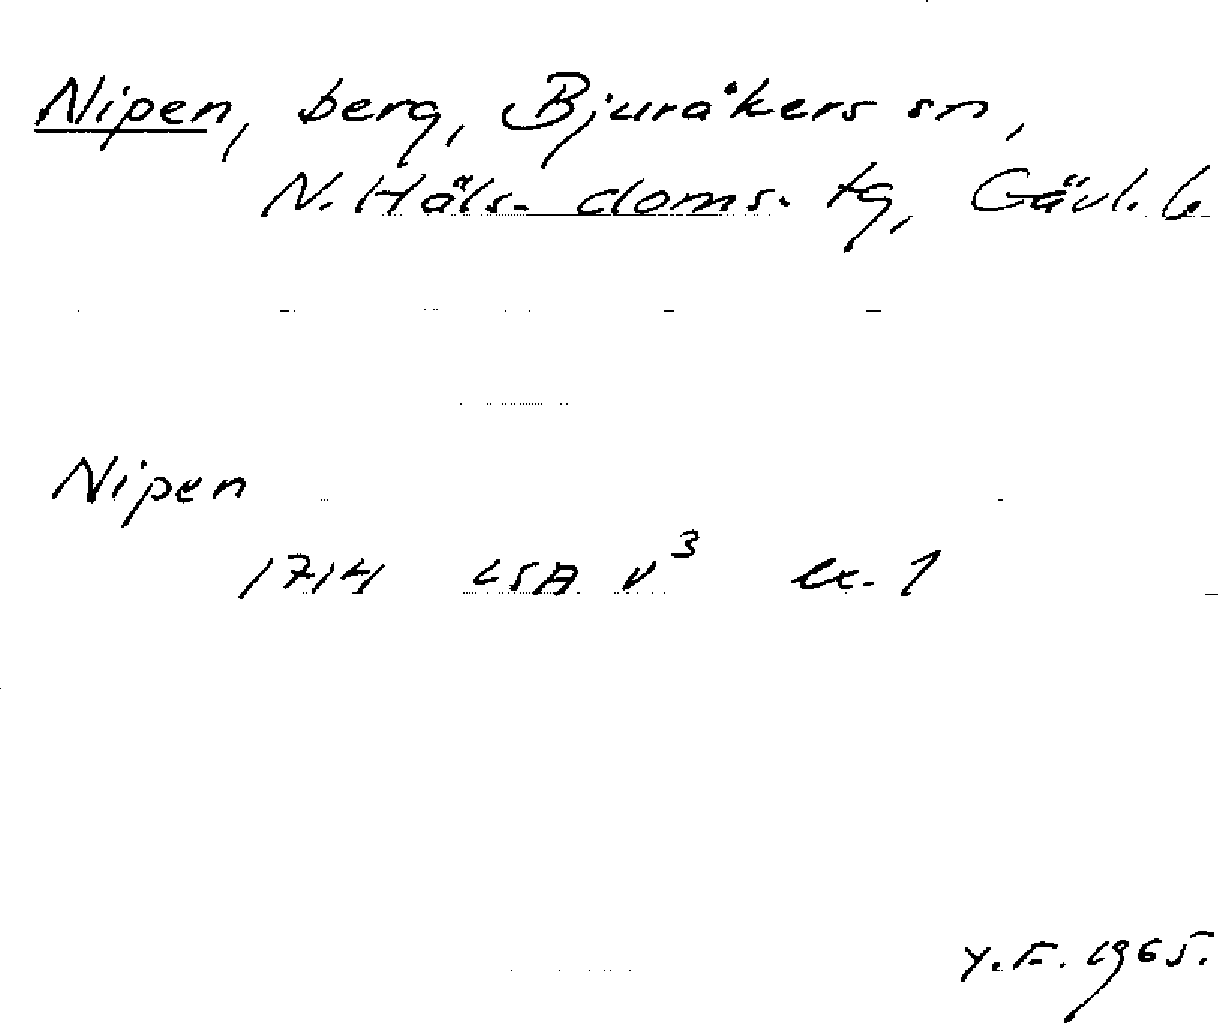 Nipen, berg, Bjuråkers sn,
N. Häls. doms. tg, Gävl. l.
Nipen
1714 LSA V³ ex. 1
Y.F. 1965.